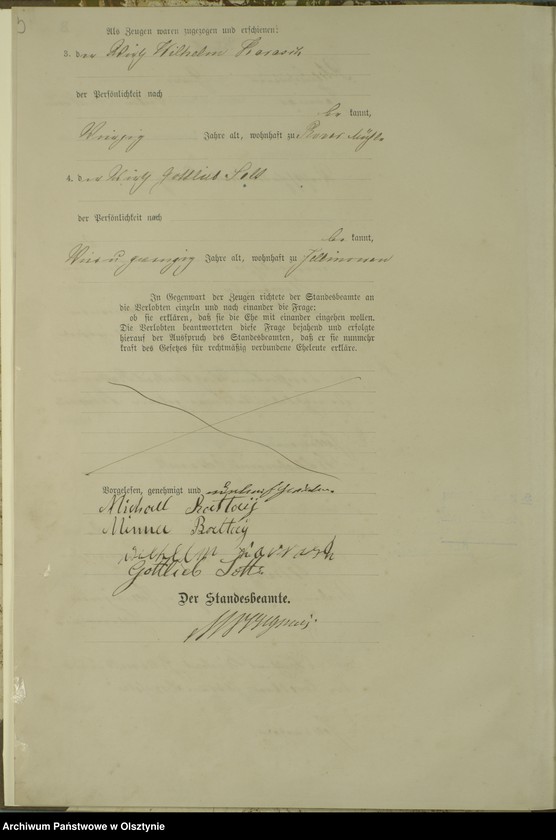 5
Als Zeugen waren zugezogen und erschienen:
3. der Wirth Wilhelm
der Persönlichkeit nach
be kannt,
Jahre alt, wohnhaft zu Mühle
4. der Wirth Gottlieb
der Persönlichkeit nach
be kannt,
Jahre alt, wohnhaft zu
In Gegenwart der Zeugen richtete der Standesbeamte an
die Verlobten einzeln und nach einander die Frage:
ob sie erklären, daß sie die Ehe mit einander eingehen wollen.
Die Verlobten beantworteten diese Frage bejahend und erfolgte
hierauf der Ausspruch des Standesbeamten, daß er sie nunmehr
kraft des Gesetzes für rechtmäßig verbundene Eheleute erkläre.
Vorgelesen, genehmigt und unterschrieben.
Michael
Minna
Wilhelm
Gottlieb
Der Standesbeamte.
Archiwum Państwowe w Olsztynie